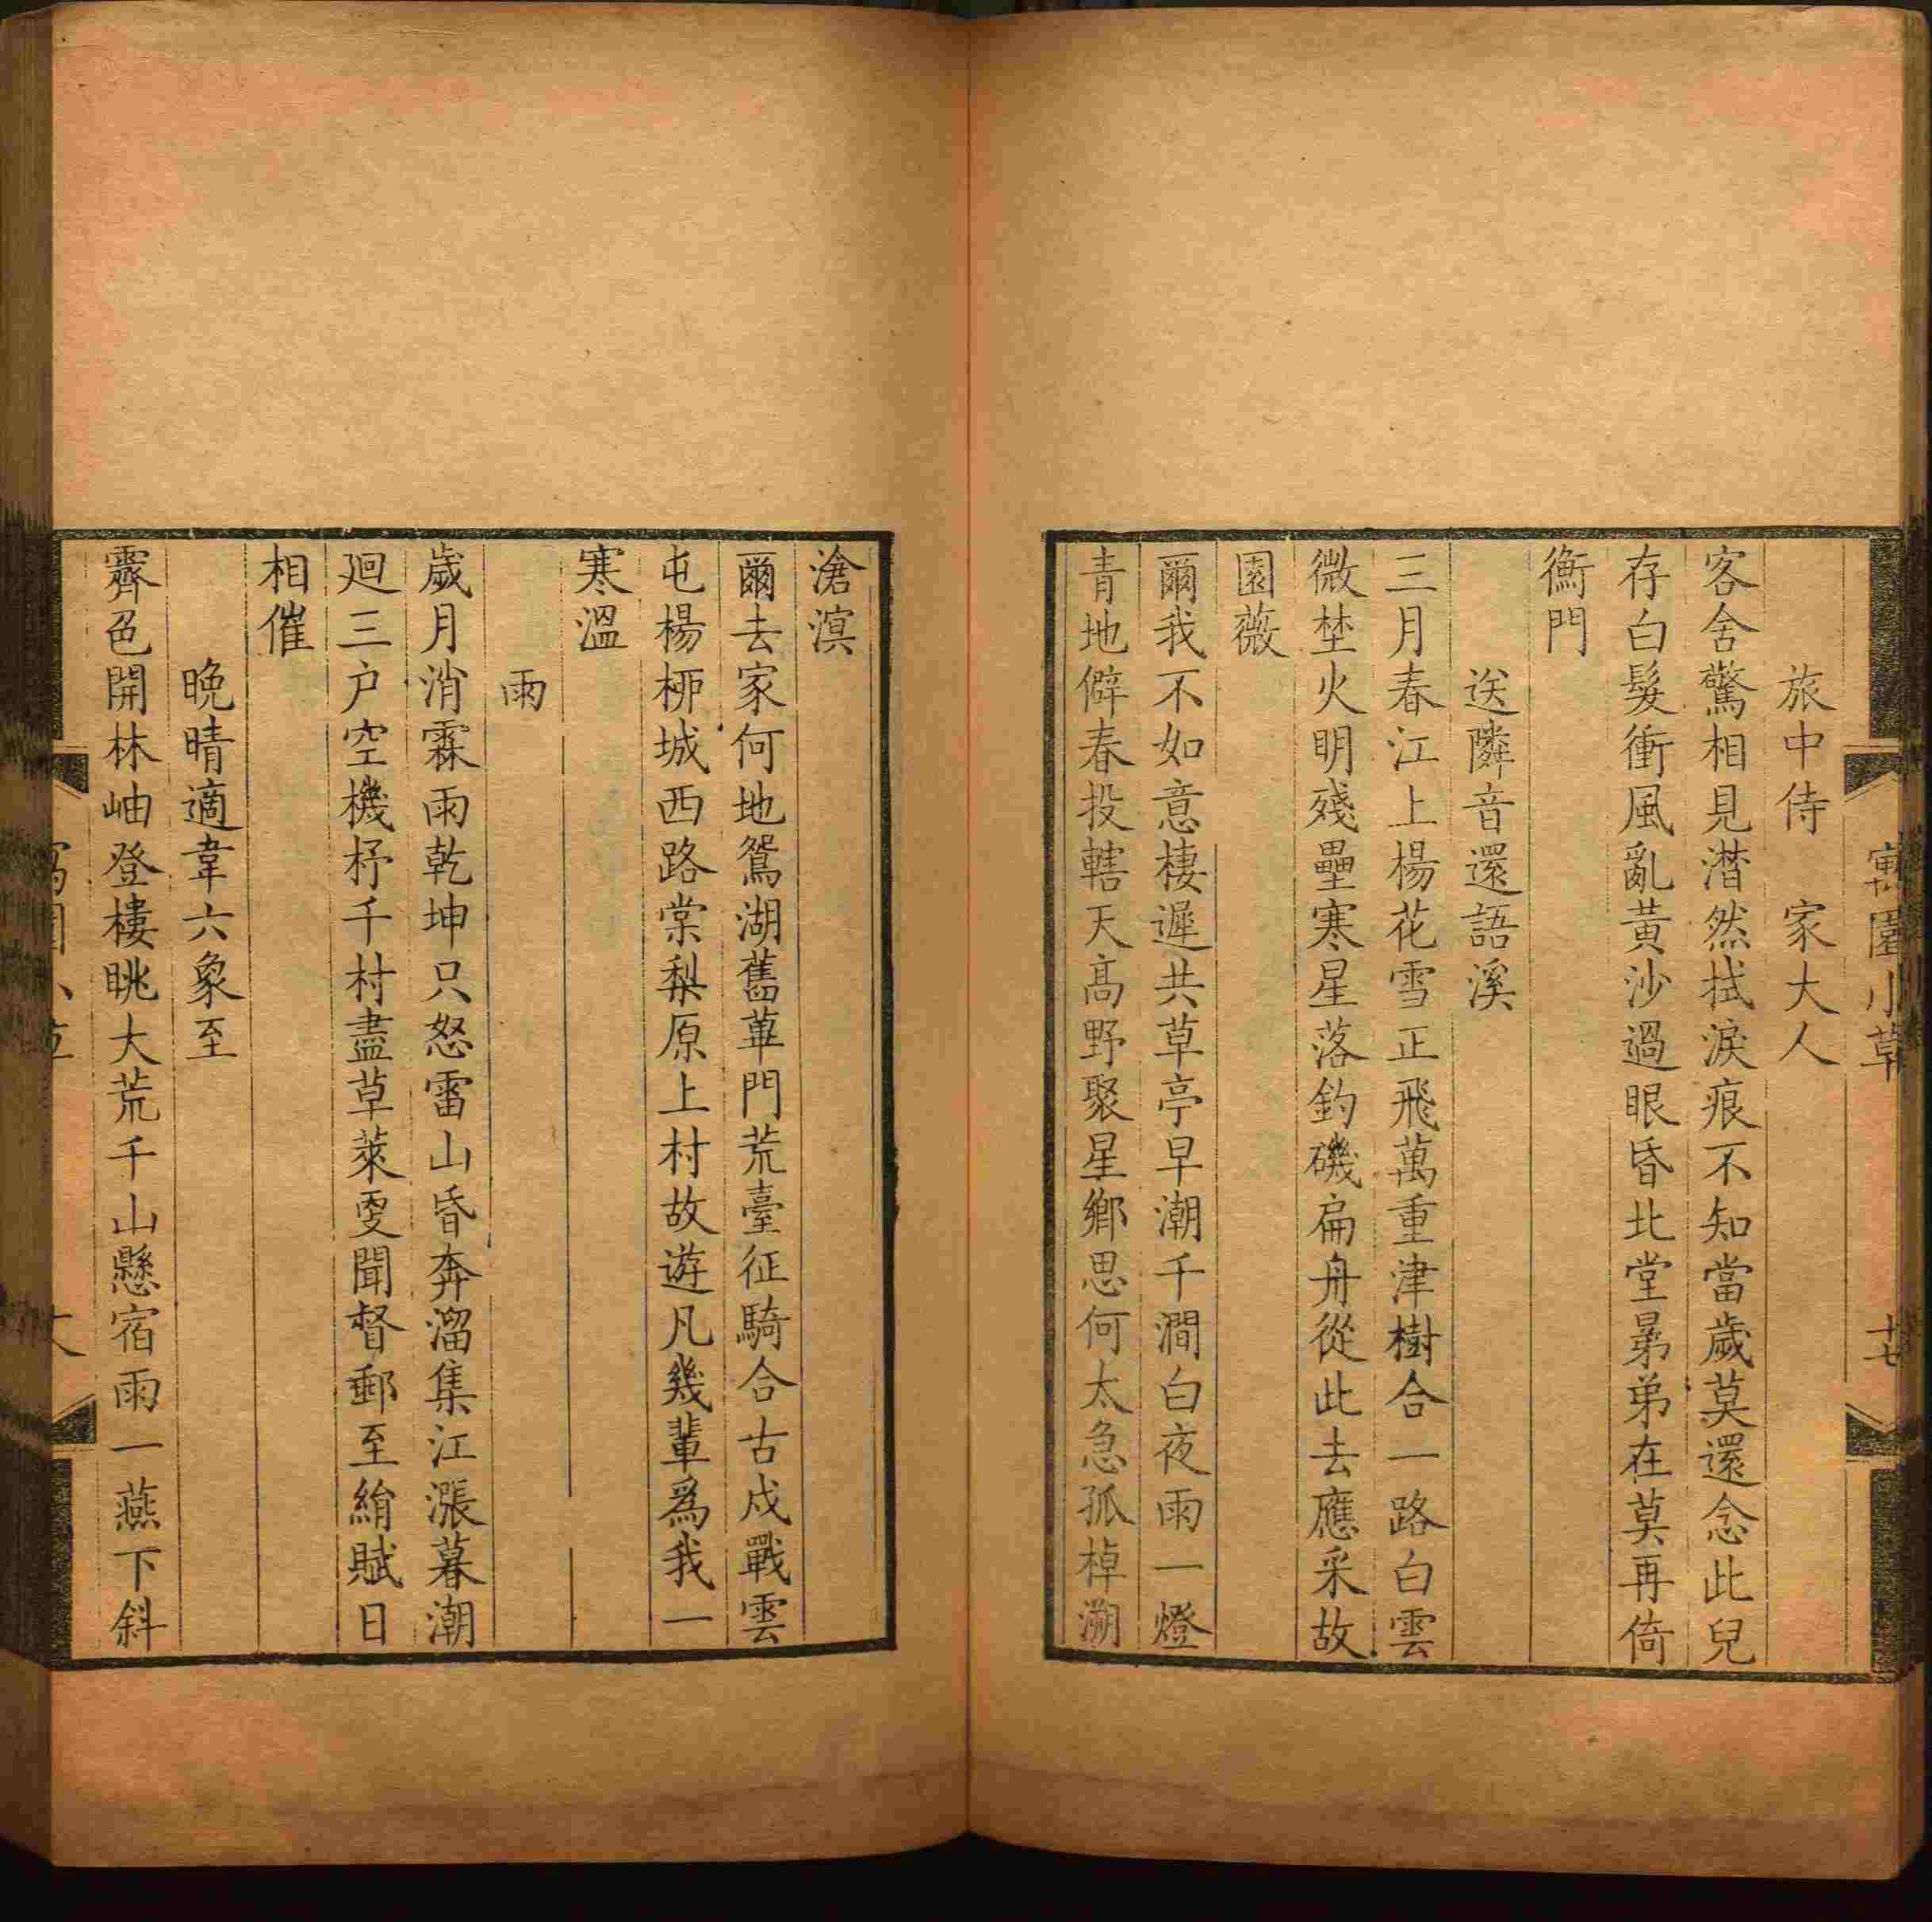 寓園小草
十七
旅中侍　家大人
客舍驚相見潸然拭淚痕不知當歲莫還念此兒
存白髮衝風亂黃沙過眼昏北堂晜弟在莫再倚
衡門
送隣音還語溪
三月春江上楊花雪正飛萬重津樹合一路白雲
微埜火明殘壘寒星落釣磯扁舟從此去應采故
園薇
爾我不如意棲遲共草亭早潮千澗白夜雨一燈
青地僻春投轄天高野聚星鄉思何太急孤棹溯
滄溟
爾去家何地鴛湖舊蓽門荒臺征騎合古戍戰雲
屯楊栁城西路棠梨原上村故遊凡幾輩爲我一
寒溫
雨
歲月消霖雨乾坤只怒雷山昏奔溜集江漲暮潮
廻三户空機杼千村盡草萊更聞督郵至絹賦日
相催
晚晴適韋六象至
霽色開林岫登樓眺大荒千山懸宿雨一燕下斜